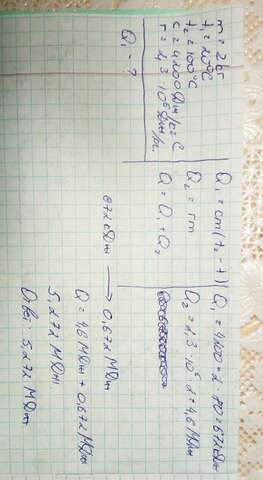 m = 2 кг
t₁ = 20°C
t₂ = 100°C
c = 4200 Дж/кг°C
r = 2,3 · 10⁶ Дж/кг
Q₁ - ?
Q₁ = cm(t₂ - t₁)
Q₂ = rm
Q = Q₁ + Q₂
Q₁ = 4200 · 2 · 80 = 672 кДж
Q₂ = 2,3 · 10⁶ · 2 = 4,6 МДж
672 кДж → 0,672 МДж
Q = 4,6 МДж + 0,672 МДж
5,272 МДж
Ответ: 5,272 МДж